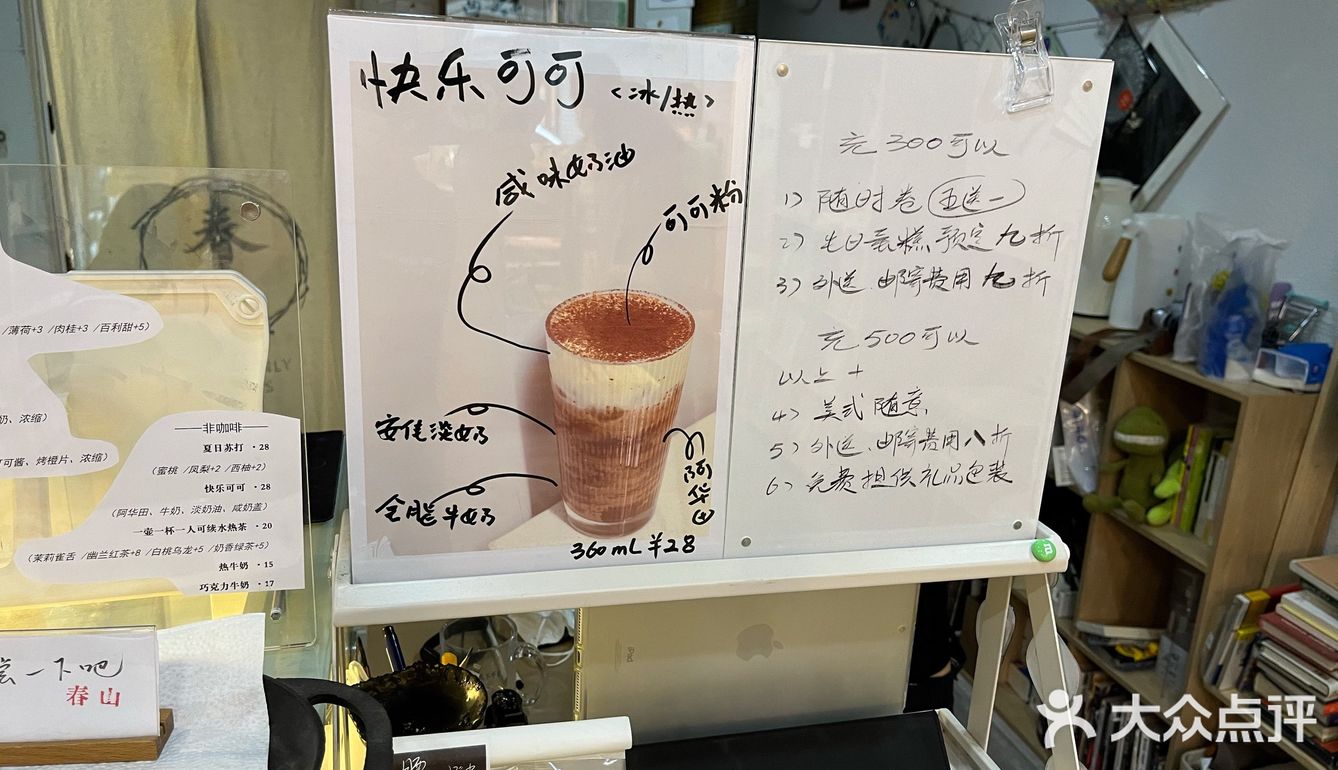 快乐可可 <冰/热>
咸味奶油
可可粉
安佳淡奶
全脂牛奶
阿华田
360mL ¥28
充300可以
1) 随时卷 五送一
2) 生日蛋糕预定九折
3) 外送、邮寄费用九折
充500可以
以上 +
4) 美式随意
5) 外送、邮寄费用八折
6) 免费提供礼品包装
/薄荷+3 /肉桂+3 /百利甜+5)
奶、浓缩)
可可酱、烤橙片、浓缩)
——非咖啡——
夏日苏打 · 28
(蜜桃 /凤梨+2 /西柚+2)
快乐可可 · 28
(阿华田、牛奶、淡奶油、咸奶盖)
一壶一杯一人可续水热茶 · 20
(茉莉雀舌 /幽兰红茶+8 /白桃乌龙+5 /奶香绿茶+5)
热牛奶 · 15
巧克力牛奶 · 17
尝一下吧
春山
春
iPad
大众点评